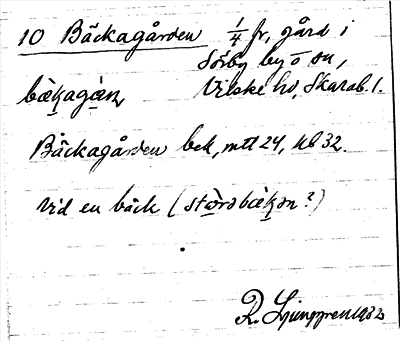 10 Bäckagården 1/4 fr, gård i
Sörby by o sn,
bækagan, Vilske hd, Skarab. l.
Bäckagården bek, mtt 24, kb 32.
Vid en bäck (storəbækən?)
R. Ljunggren 1932